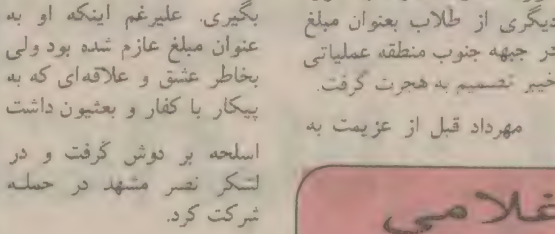 دیگری از طلاب بعنوان مبلغ
در جبهه جنوب منطقه عملیاتی
خیبر تصمیم به هجرت گرفت.
مهرداد قبل از عزیمت به
غلامی
بگیری. علیرغم اینکه او به
عنوان مبلغ عازم شده بود ولی
بخاطر عشق و علاقه‌ای که به
پیکار با کفار و بعثیون داشت
اسلحه بر دوش گرفت و در
لشکر نصر مشهد در حمله
شرکت کرد.